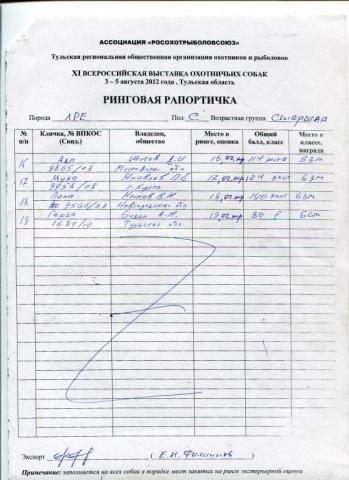 АССОЦИАЦИЯ «РОСОХОТРЫБОЛОВСОЮЗ»
Тульская региональная общественная организация охотников и рыболовов
XI ВСЕРОССИЙСКАЯ ВЫСТАВКА ОХОТНИЧЬИХ СОБАК
3 – 5 августа 2012 года , Тульская область
РИНГОВАЯ РАПОРТИЧКА
Порода ЛРЕ Пол С Возрастная группа Старшая
№ п/п Кличка, № ВПКОС (Свид.) Владелец, общество Место в ринге, оценка Общий балл, класс Место в классе, награда
16 Ада 16, 114 элита БЗМ
9865/08 Московская обл
17 Яковлев 17, 124 элит БЗМ
9956/08 г. Курск
18 18, 140 элит БЗМ
9566/07 Новгородская обл
19 Герда 19, 80 II БСМ
Тульская обл
Эксперт (Е.Н. Филиппов)
Примечание: заполняется на всех собак в порядке мест занятых на ринге экстерьерной оценки